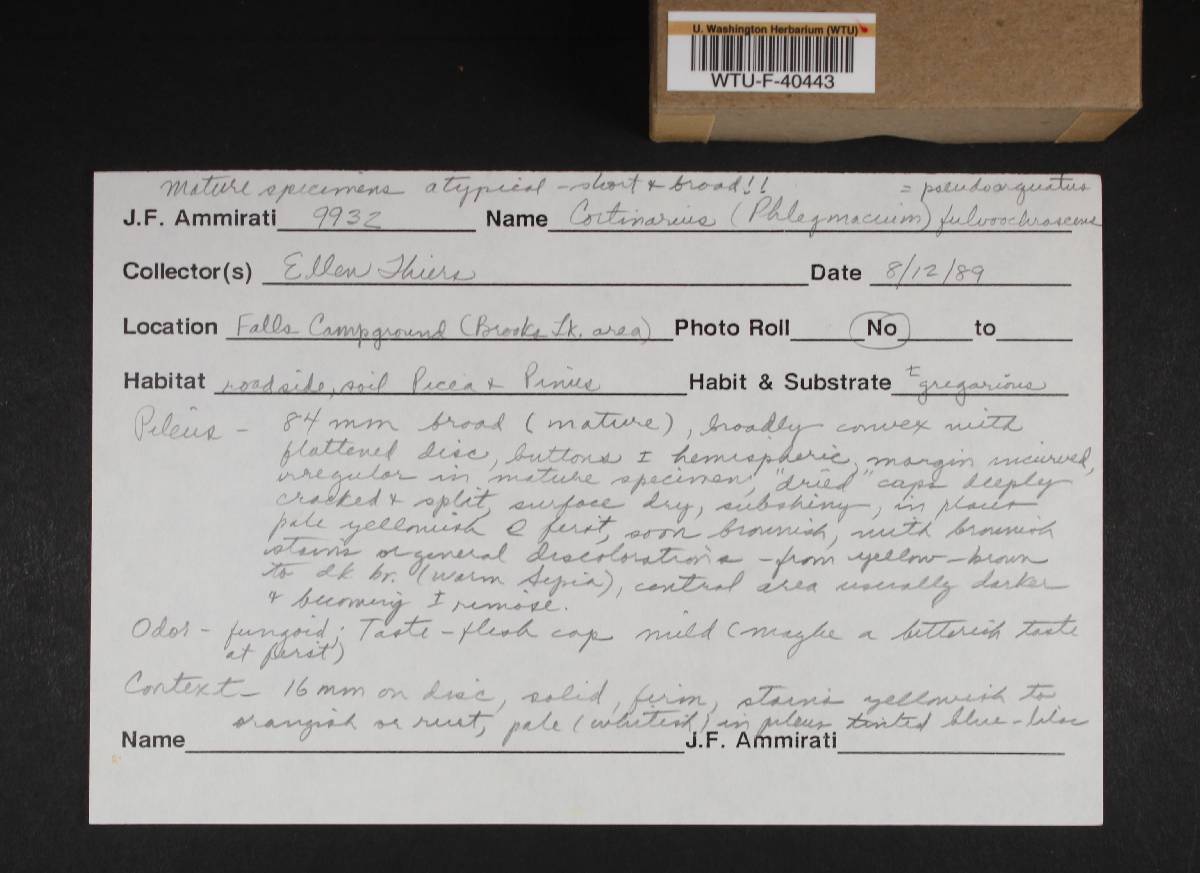 U. Washington Herbarium (WTU)
WTU-F-40443
Mature specimens atypical - short & broad!! = pseudoarquatus
J.F. Ammirati 9932 Name Cortinarius (Phlegmacium) fulvoochrascens
Collector(s) Ellen Thiers Date 8/12/89
Location Falls Campground (Brooks Lk. area) Photo Roll No to
Habitat roadside, soil Picea & Pinus Habit & Substrate ± gregarious
Pileus - 84 mm broad (mature), broadly convex with
flattened disc, buttons ± hemispheric, margin incurved,
irregular in mature specimen, "dried" caps deeply
cracked & split, surface dry, subshiny, in places
pale yellowish @ first, soon brownish, with brownish
stains or general discolorations - from yellow-brown
to dk br. (warm sepia), central area usually darker
& becoming ± rimose.
Odor - fungoid; Taste - flesh cap mild (maybe a bitterish taste
at first)
Context - 16 mm on disc, solid, firm, stains yellowish to
orangish or rust, pale (whitish) in pileus tinted blue-lilac
Name J.F. Ammirati